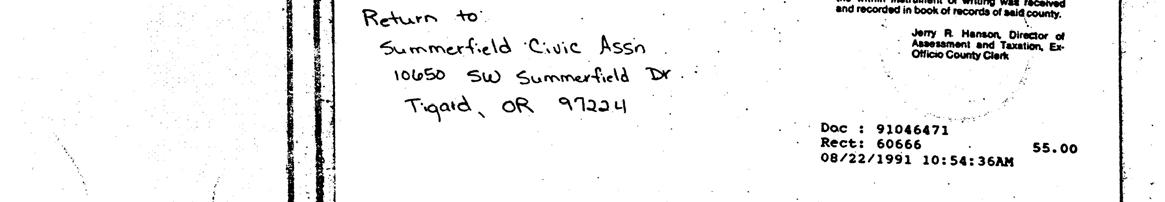 Return to:
Summerfield Civic Assn
10650 SW Summerfield Dr.
Tigard, OR 97224
the within instrument of writing was received
and recorded in book of records of said county.
Jerry R. Hanson, Director of
Assessment and Taxation, Ex-
Officio County Clerk
Doc : 91046471
Rect: 60666 55.00
08/22/1991 10:54:36AM